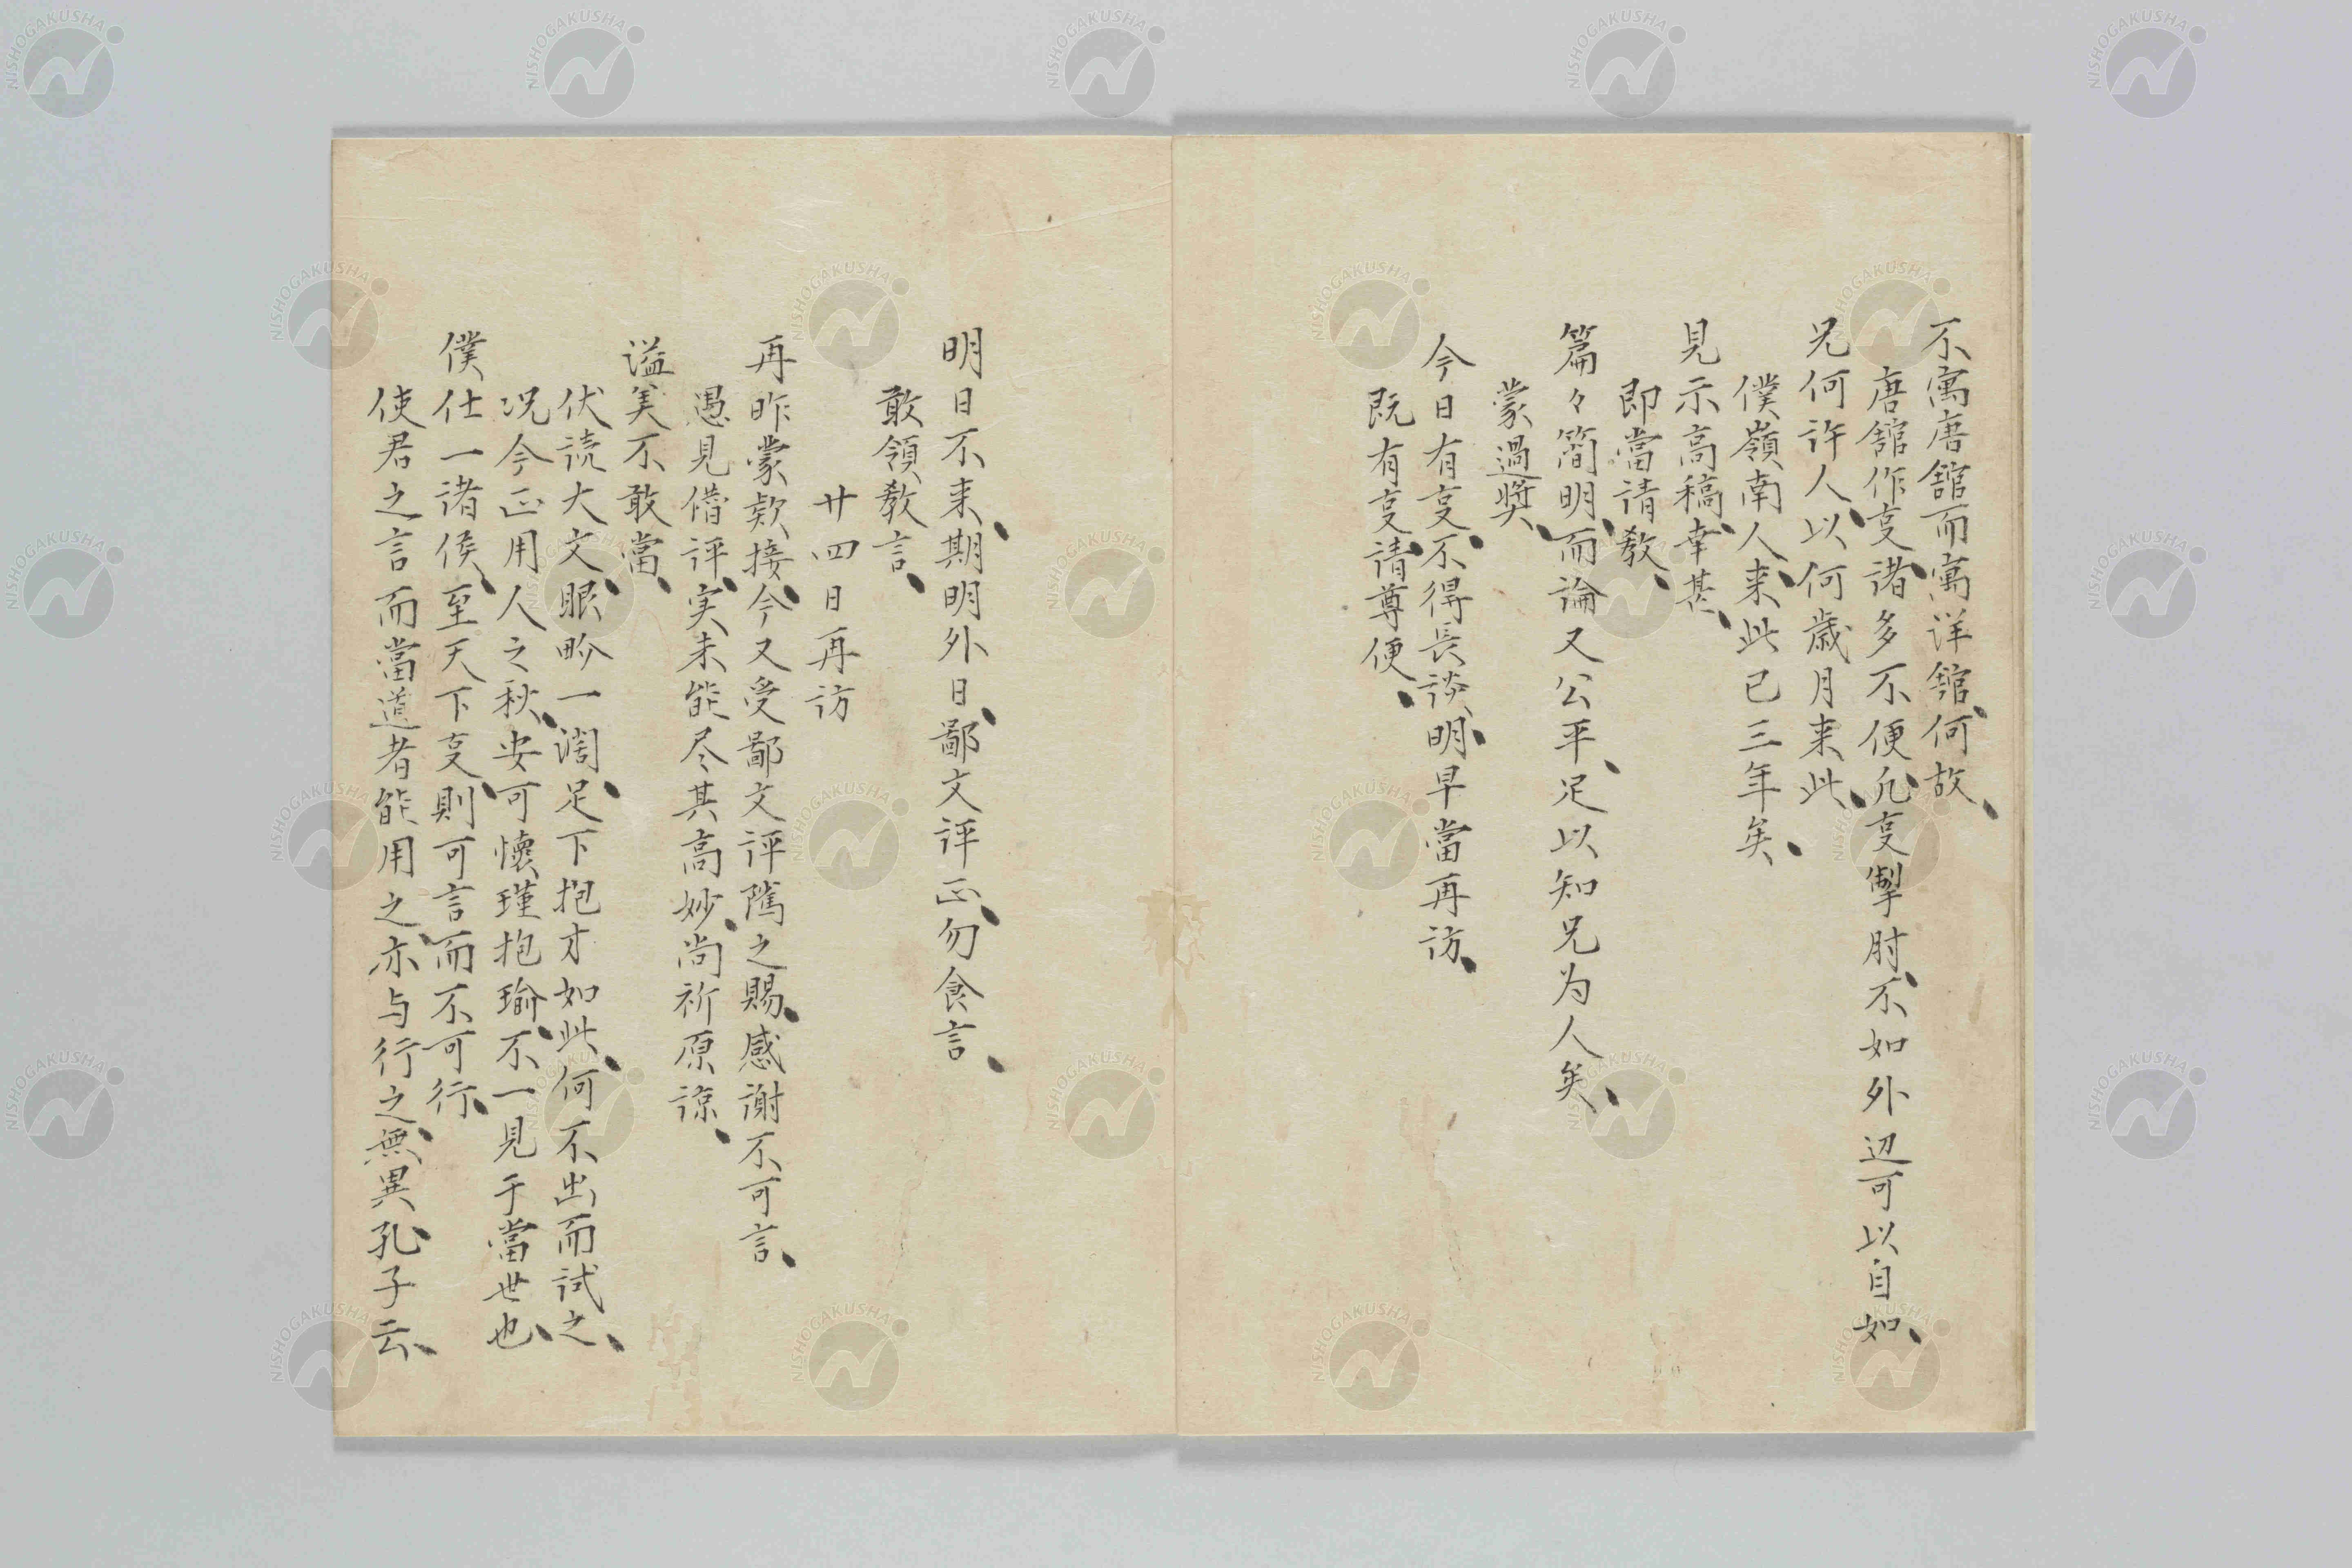 不寓唐舘而寓洋舘、何故、
唐舘作㕝諸多不便、凢㕝掣肘、不如外辺可以自如、
兄何許人、以何歳月来此、
僕嶺南人、来此已三年矣、
見示高稿、幸甚、
即當請教、
篇々簡明、而論又公平、足以知兄为人矣、
蒙過奬、
今日有㕝、不得長談、明早當再訪、
既有㕝、請尊便、
明日不来、期明外日、鄙文評正、勿食言、
敢領教言、
廿四日再訪
再昨蒙欵接、今又受鄙文評隲之賜、感谢不可言、
愚見僭評、实未能尽其高妙、尚祈原諒、
謚美不敢當、
伏読大文、眼畍一濶、足下抱才如此、何不出而試之、
况今正用人之秋、安可懐瑾抱瑜、不一見于當世也、
僕仕一諸侯、至天下㕝、則可言而不可行、
使君之言而當道者能用之、亦与行之無異、孔子云、
NISHOGAKUSHA